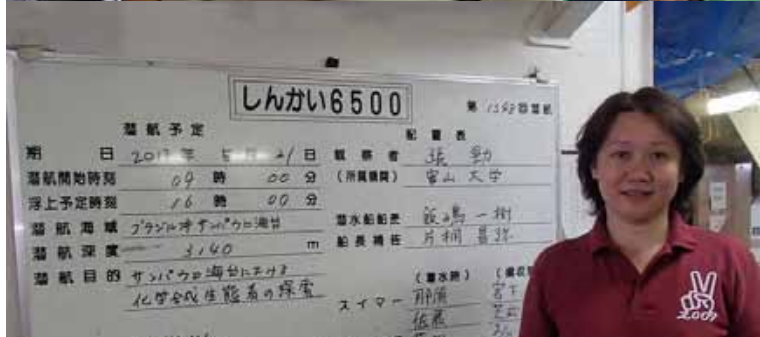 しんかい6500
第1343回潜航
潜航予定
期 日 2013年 5月21日
潜航開始時刻 09時00分
浮上予定時刻 16時00分
潜航海域 ブラジル沖サンパウロ海台
潜航深度 3140 m
潜航目的 サンパウロ海台における
化学合成生態系の探索
配置表
観察者 張 勁
(所属機関) 富山大学
潜水船船長 飯嶋 一樹
船長補佐 片桐 昌弥
(着水時)
スイマー
佐藤
宮下
2007